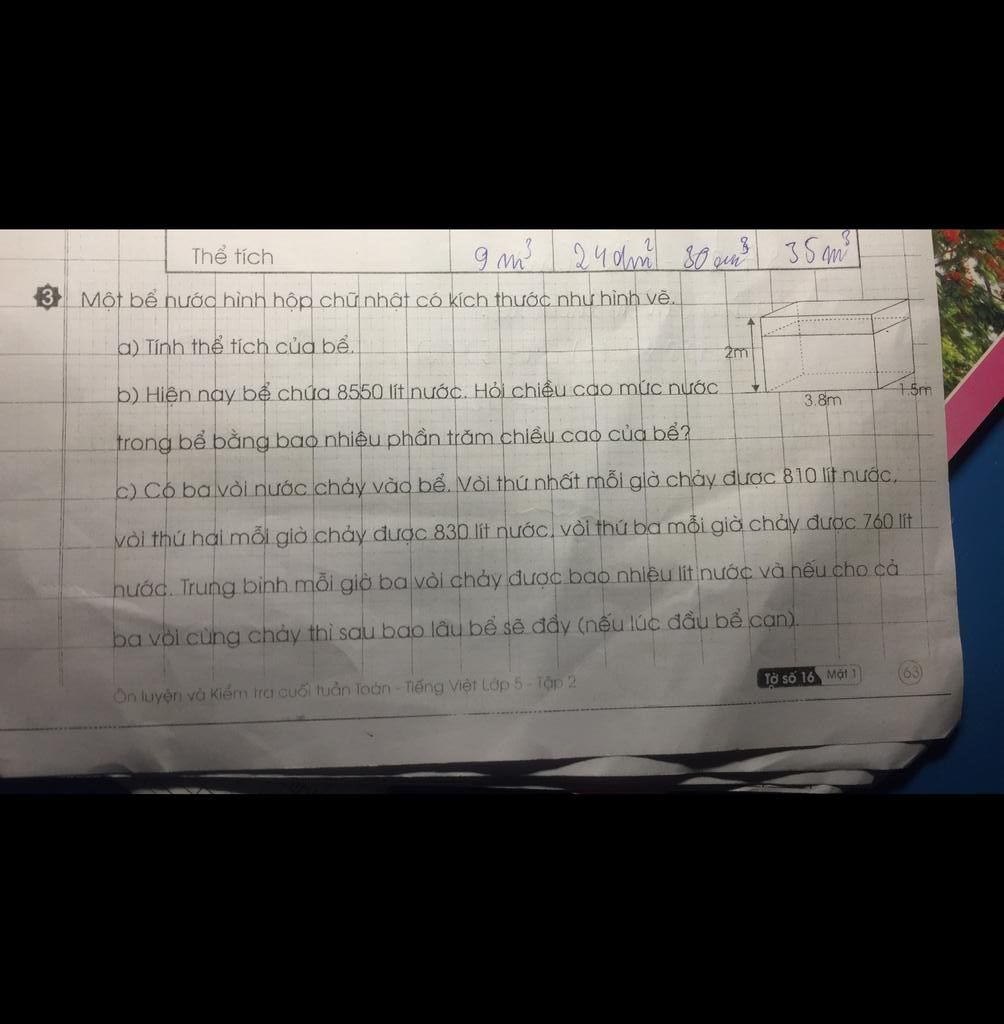 Thể tích 9 m³ 24 dm² 30 cm³ 35 m³
3 Một bể nước hình hộp chữ nhật có kích thước như hình vẽ.
a) Tính thể tích của bể.
2m
b) Hiện nay bể chứa 8550 lít nước. Hỏi chiều cao mức nước
1.5m
3.8m
trong bể bằng bao nhiêu phần trăm chiều cao của bể?
c) Có ba vòi nước chảy vào bể. Vòi thứ nhất mỗi giờ chảy được 810 lít nước,
vòi thứ hai mỗi giờ chảy được 830 lít nước, vòi thứ ba mỗi giờ chảy được 760 lít
nước. Trung bình mỗi giờ ba vòi chảy được bao nhiêu lít nước và nếu cho cả
ba vòi cùng chảy thì sau bao lâu bể sẽ đầy (nếu lúc đầu bể cạn).
Ôn luyện và Kiểm tra cuối tuần Toán - Tiếng Việt Lớp 5 - Tập 2 Tờ số 16 Mặt 1 63